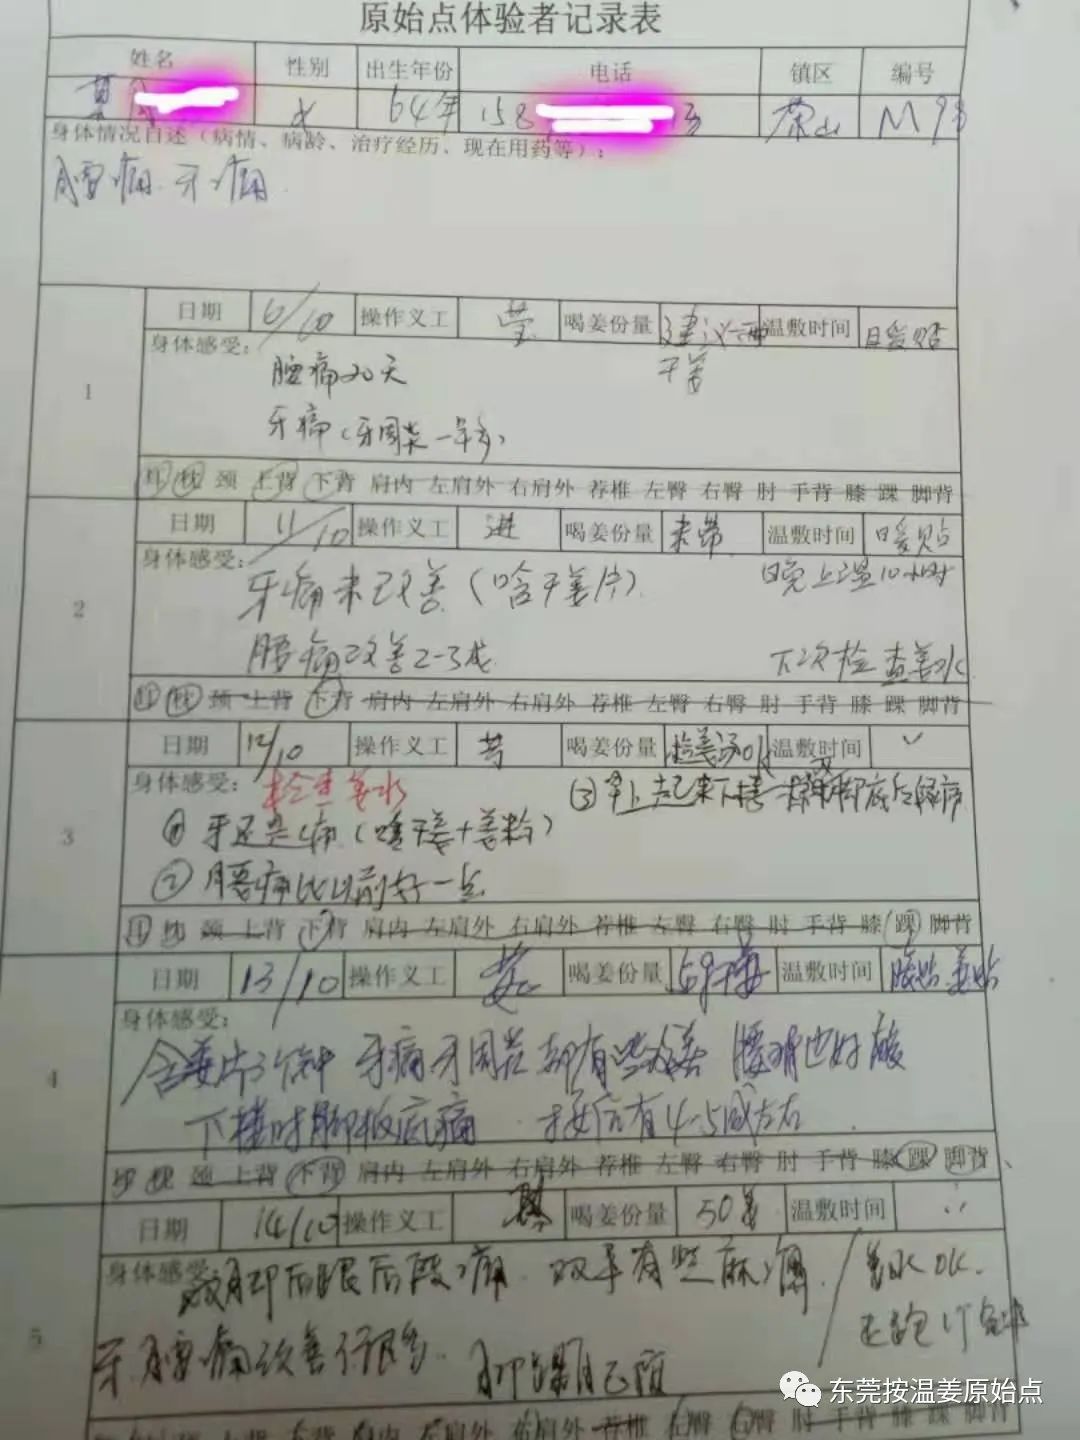 原始点体验者记录表
姓名 性别 出生年份 电话 镇区 编号
女 64年 158 茶山 M93
身体情况自述（病情、病龄、治疗经历、现在用药等）：
腰痛 牙痛
1
日期 6/10 操作义工 莹 喝姜份量 建议喝干姜 温敷时间 暖贴
身体感受：
腰痛20天
牙痛（牙周炎一年多）
耳 枕 颈 上背 下背 肩内 左肩外 右肩外 荐椎 左臀 右臀 肘 手背 膝 踝 脚背
2
日期 11/10 操作义工 进 喝姜份量 未带 温敷时间 暖贴
身体感受：
晚上温10小时
牙痛未改善（含干姜片）
腰痛改善2-3成
下次检查姜水
耳 枕 颈 上背 下背 肩内 左肩外 右肩外 荐椎 左臀 右臀 肘 手背 膝 踝 脚背
3
日期 12/10 操作义工 喝姜份量 温敷时间 ✓
身体感受： 检查姜水
③早上起来下楼 脚底后跟痛
① 牙还是痛（含干姜+姜粉）
② 腰痛比以前好一点
耳 枕 颈 上背 下背 肩内 左肩外 右肩外 荐椎 左臀 右臀 肘 手背 膝 踝 脚背
4
日期 13/10 操作义工 喝姜份量 温敷时间
身体感受：
含姜片 牙痛牙周炎都有些改善 腰痛也好
下楼时脚板底痛 按后有4-5成左右
耳 枕 颈 上背 下背 肩内 左肩外 右肩外 荐椎 左臀 右臀 肘 手背 膝 踝 脚背
5
日期 14/10 操作义工 喝姜份量 50姜 温敷时间
身体感受：
脚后跟后段痛 双手有些麻痛 姜水OK
牙、腰痛改善得很多
左肩外 右肩外 荐椎 左臀 右臀 肘 手背 膝 踝 脚背
东莞按温姜原始点